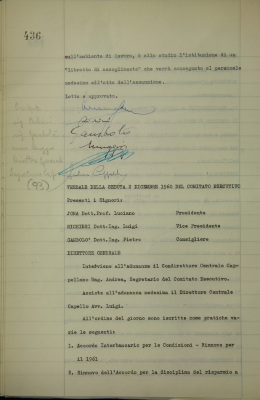 436
sull'ambiente di lavoro, è allo studio l'istituzione di un
"libretto di accoglimento" che verrà consegnato al personale
medesimo all'atto dell'assunzione.
Letto e approvato.
(93)
VERBALE DELLA SEDUTA 2 DICEMBRE 1960 DEL COMITATO ESECUTIVO
Presenti i Signori:
JONA Dott.Prof. Luciano Presidente
Dott.Ing. Luigi Vice Presidente
Dott.Ing. Pietro Consigliere
DIRETTORE GENERALE
Interviene all'adunanza il Condirettore Centrale Cap-
pellano Rag. Andrea, Segretario del Comitato Esecutivo.
Assiste all'adunanza medesima il Direttore Centrale
Capello Avv. Luigi.
All'ordine del giorno sono iscritte come pratiche va-
rie le seguenti:
1. Accordo Interbancario per le Condizioni - Rinnovo per
il 1961
2. Rinnovo dell'Accordo per la disciplina del risparmio a